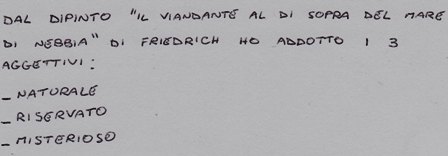 DAL DIPINTO "IL VIANDANTE AL DI SOPRA DEL MARE
DI NEBBIA" DI FRIEDRICH HO ADDOTTO I 3
AGGETTIVI:
_ NATURALE
_ RISERVATO
_ MISTERIOSO